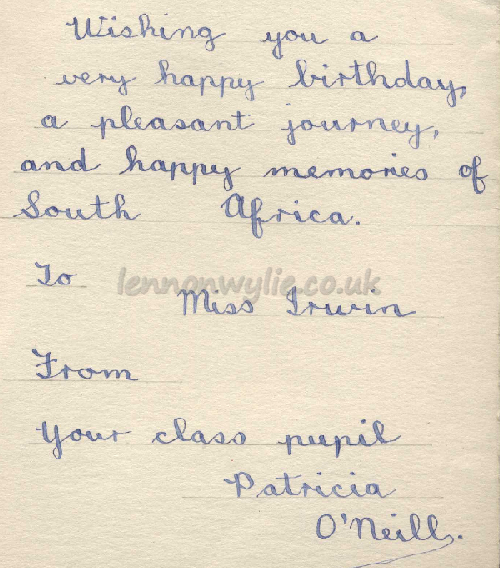 Wishing you a
very happy birthday,
a pleasant journey,
and happy memories of
South Africa.
To
lennonwylie.co.uk
Miss Irwin
From
Your class pupil
Patricia
O'Neill.